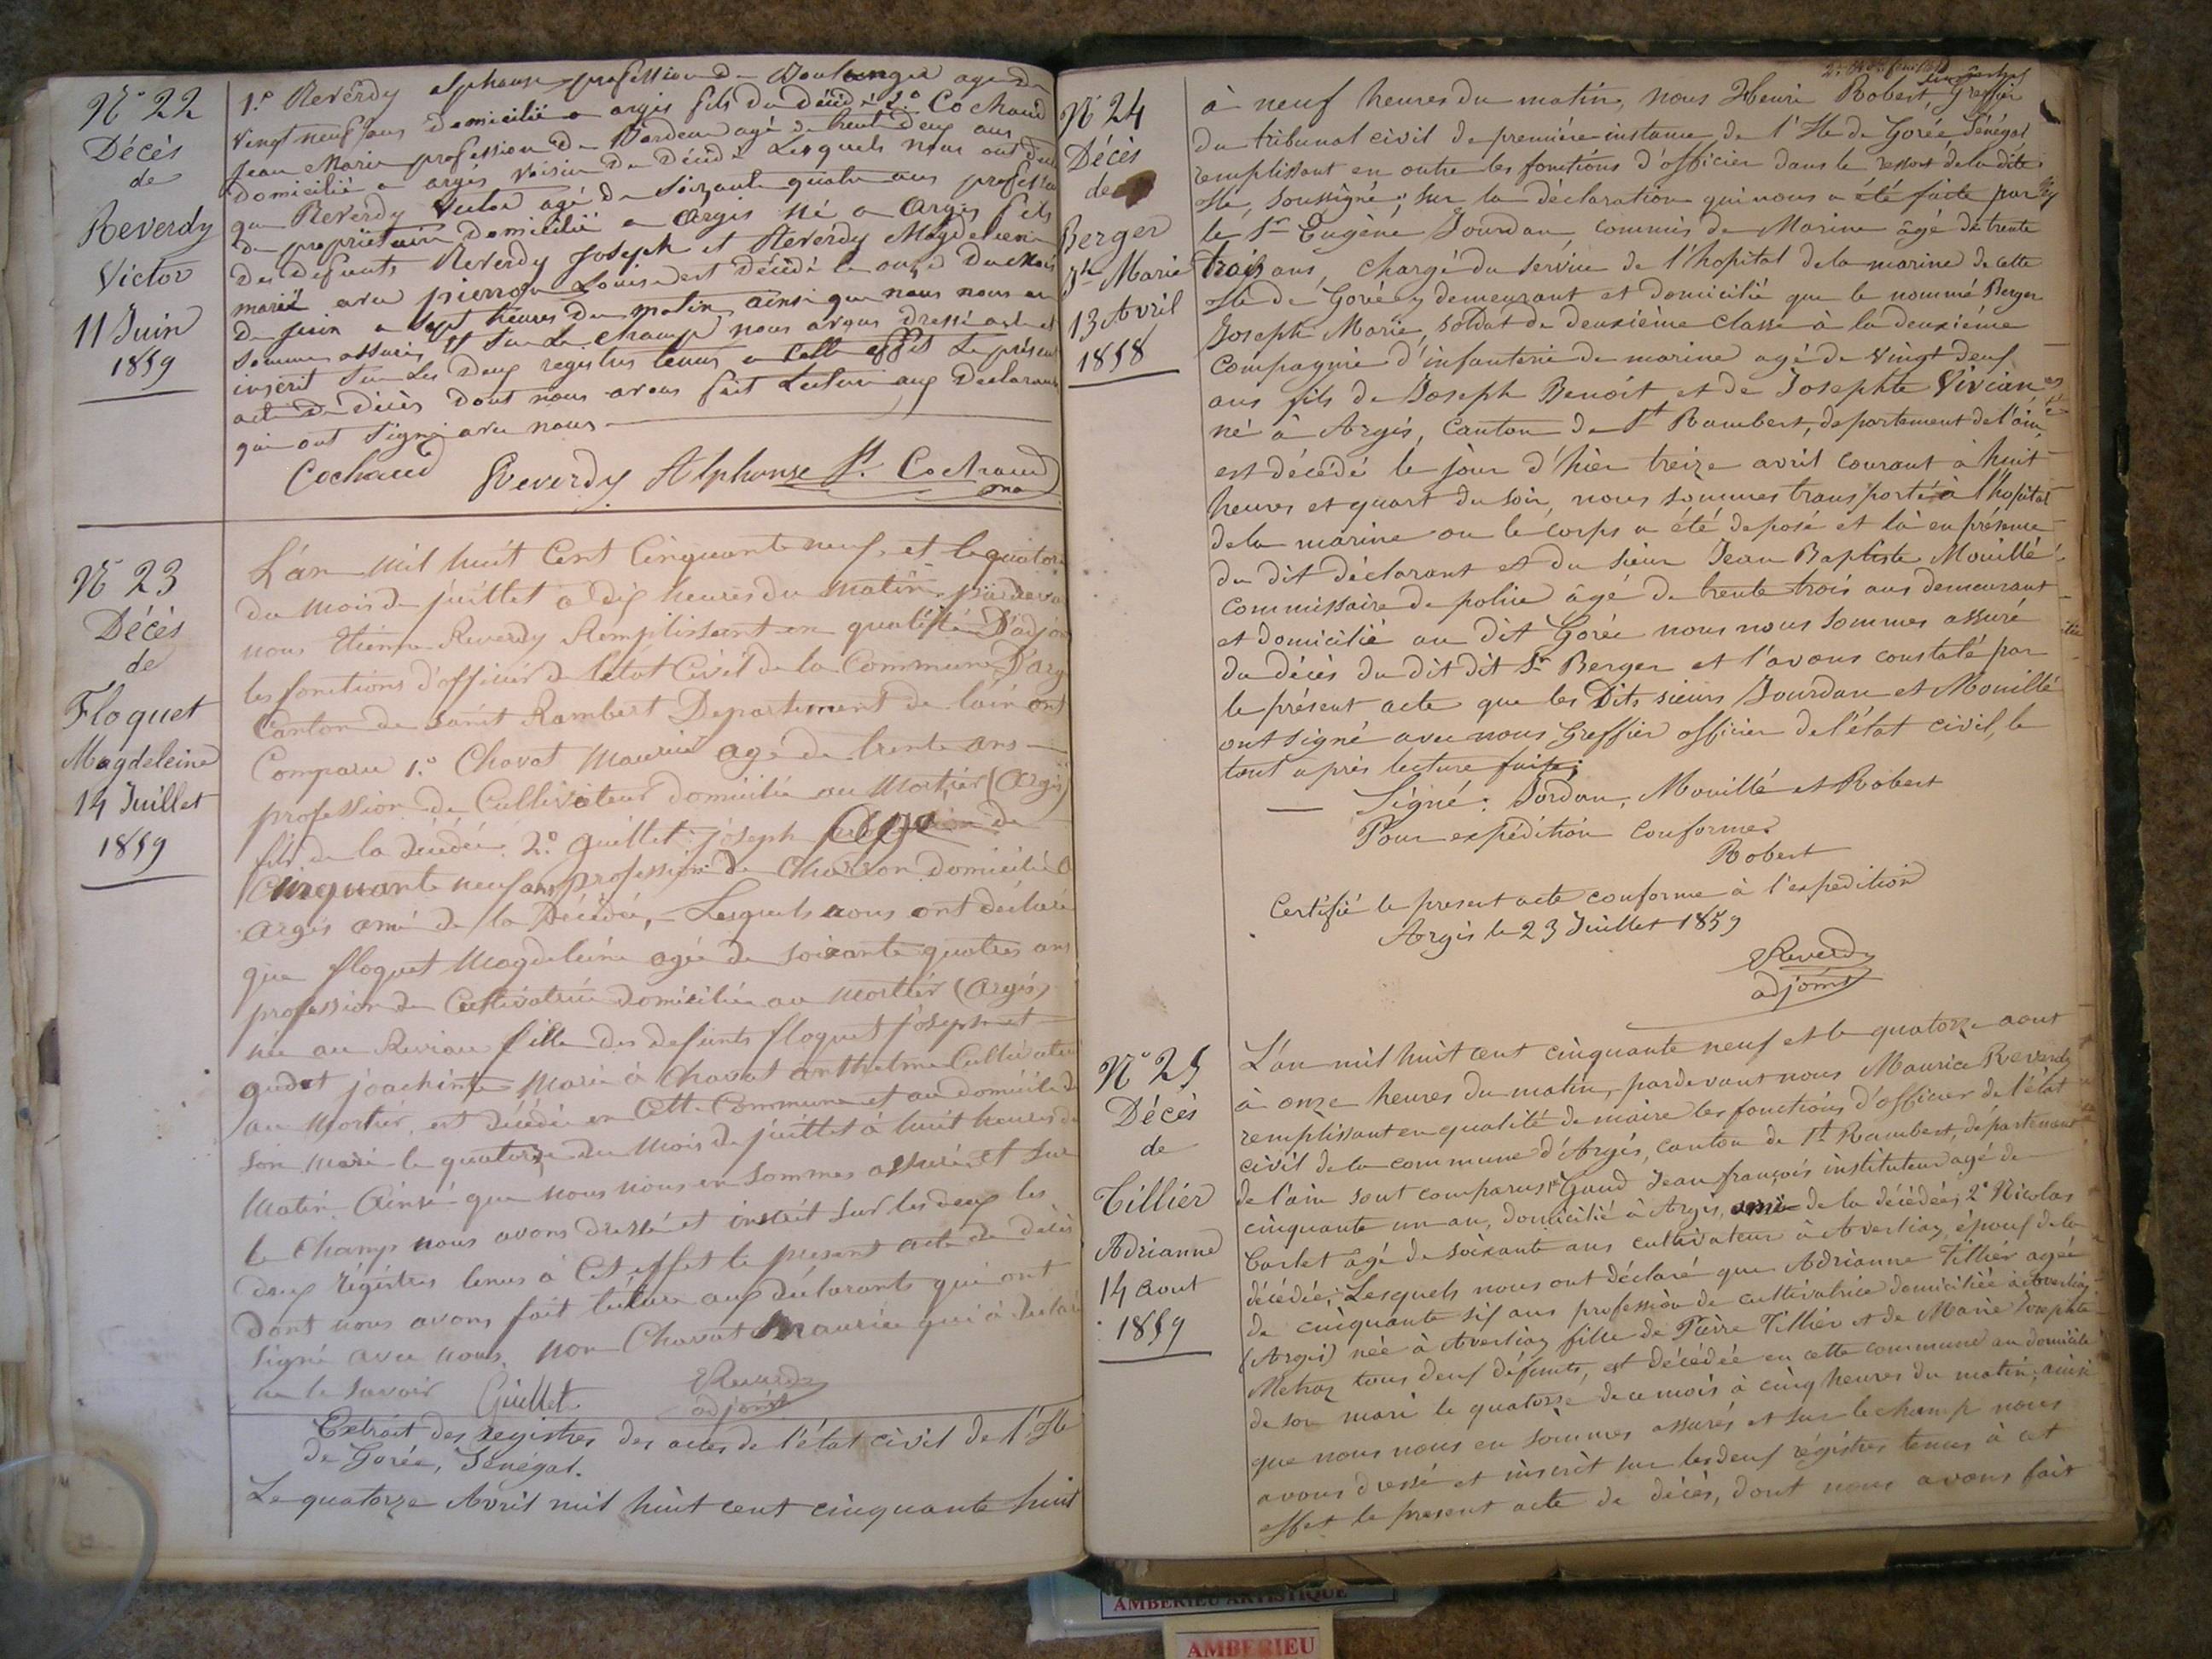 N° 22
Décès
de
Reverdy
Victor
11 Juin
1859
1.° Reverdy alphonse profession de Boulanger age de
vingt neuf ans domicilié a argis fils du décédé 2.° Cochaud
Jean Marie profession de Bordeur agé de trente deux ans
domicilié a argis voisin du décédé Lesquels nous ont
que Reverdy Victor agé de Soixante quatre ans
de propriétaire domicilié a Argis né a Argis fils
des defunts Reverdy Joseph et Reverdy Magdeleine
marié avec Louise est décédé le onze
de juin a Sept heures du matin ainsi que nous nous en
sommes assurés et Sur Le champ nous avons dressé acte et
inscrit Sur Les deux registres tenus a cette effet Le présent
acte de décès dont nous avons fait Lecture aux Declarants
qui ont Signé avec nous
Cochaud Reverdy Alphonse Cochaud
N° 23
Décès
de
Floquet
Magdeleine
14 Juillet
1859
L'an Mil huit Cent Cinquante neuf et le quatorze
du mois de juillet a dix heures du matin Pardevant
nous Etienne Reverdy Remplissant en qualité D'adjoint
les fonctions d'officier de l'état Civil de la Commune D'arg
Canton de saint Rambert Departement de lain ont
Comparu 1.° Chavat Maurice agé de trente ans
profession de Cultivateur domicilié au Mortier (Argis)
fils de la décédée 2.° Guillet joseph age de
Cinquante neuf ans profession de Charron domicilié a
Argis ami de la Décédée, Lesquels nous ont déclaré
que floquet Magdeleine agée de soixante quatres ans
profession de Cultivatrice domiciliée au Mortier (Argis)
née au fille des defunts floquet joseph et
joachime Mariée à Chavat anthelme Cultivateur
au Mortier, est décédée en Cette Commune et au domicile de
son Mari le quatorze du Mois de juillet à huit heures du
Matin Ainsi que nous nous en sommes assurés et Sur
le Champ nous avons dressé et inscrit sur les deux les
deux régistres tenus à Cet effet le présent acte de décès
dont nous avons fait lecture aux déclarants qui ont
signé avec nous non Chavat Maurice qui à declaré
ne le savoir Guillet Reverdy
adjoint
Extrait des registres des actes de l'état civil de l'Ile
de Gorée, Sénégal.
Le quatorze Avril mil huit cent cinquante huit
N° 24
Décès
de
Berger
Jh Marie
13 Avril
1858
à neuf heures du matin, nous Henri Robert, Greffier
du tribunal civil de première instance de l'Ile de Gorée Sénégal
remplissant en outre les fonctions d'officier dans le ressort de la dite
Ile, soussigné; sur la déclaration qui nous a été faite par
le Sr Eugène Jourdan, commis de Marine âgé de trente
trois ans, chargé du service de l'hopital de la marine de cette
Ile de Gorée y demeurant et domicilié que le nommé Berger
Joseph Marie, soldat de deuxième classe à la deuxième
compagnie d'infanterie de marine agé de vingt deux
ans fils de Joseph Benoit et de Josephte Vivian
né à Argis, Canton de St Rambert, departement de l'ain,
est décédé le jour d'hier treize avril courant à huit
heures et quart du soir, nous sommes transporté à l'hopital
de la marine ou le corps a été deposé et là en présence
du dit déclarant et du sieur Jean Baptiste Mouillé
Commissaire de police âgé de trente trois ans demeurant
et domicilié au dit Gorée nous nous sommes assuré
du décès du dit dit Sr Berger et l'avons constaté par
le présent acte que les Dits sieurs Jourdan et Mouillé
ont signé avec nous Greffier officier de l'état civil, le
tout après lecture faite;
Signé: Jordan, Mouillé et Robert
Pour expédition conforme
Robert
Certifié le present acte conforme à l'expedition
Argis le 23 Juillet 1859
Reverdy
adjoint
N° 25
Décès
de
Tillier
Adrianne
14 aout
1859
L'an mil huit cent cinquante neuf et le quatorze aout
à onze heures du matin, pardevant nous Maurice Reverdy
remplissant en qualité de maire les fonctions d'officier de l'état
civil de la commune d'Argis, canton de St Rambert, département
de l'ain sont comparus 1° Gaud Jean françois instituteur agé de
cinquante un an, domicilié à Argis, ami de la décédée; 2° Nicolas
Carlet âgé de soixante ans cultivateur à Averliaz, époux de la
décédée; Lesquels nous ont déclaré que Adrianne Tillier agée
de cinquante six ans profession de cultivatrice domiciliée à Averliaz
(Argis) née à Averliaz fille de Pierre Tillier et de Marie Josephte
Metraz tous deux défunts, est décédée en cette commune au domicile
de son mari le quatorze de ce mois à cinq heures du matin; ainsi
que nous nous en sommes assurés et sur le champ nous
avons dressé et inscrit sur les deux régistres tenus à cet
effet le present acte de décès, dont nous avons fait
AMBERIEU ARTISTIQUE
AMBERIEU